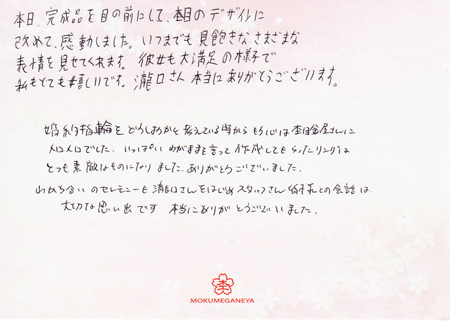 本日、完成品を目の前にして、木目のデザインに
改めて、感動しました。いつまでも見飽きなさまざまな
表情を見せてくれます。彼女も大満足の様子で
私もとても嬉しいです。瀧口さん本当にありがとうございます。
婚約指輪をどうしようかと考えている時から もう心は杢目金屋さんに
メロメロでした。いっぱいわがままを言って作成してもらったリングは
とっても素敵なものになりました。ありがとうございました。
わかちあいのセレモニーも瀧口さんをはじめスタッフさん 皆さんとの会話は
大切な思い出です 本当にありがとうございました。
杢
MOKUMEGANEYA